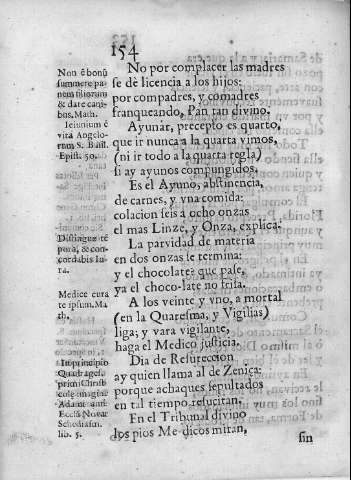 154
No por complacer las madres
se dè licencia a los hijos:
por compadres, y comadres
franqueando, Pan tan divino.
Ayunar, precepto es quarto,
que ir nunca a la quarta vimos,
(ni ir todo a la quarta regla)
si ay ayunos compungidos.
Es el Ayuno, abstinencia,
de carnes, y vna comida:
colacion seis à ocho onzas
el mas Linze, y Onza, explica.
La parvidad de materia
en dos onzas se termina:
y el chocolate: que pase,
ya el choco-late no frisa.
A los veinte y vno, a mortal
(en la Quaresma, y Vigilias)
liga; y vara vigilante,
haga el Medico justicia.
Dia de Resurreccion
ay quien llama al de Zeniça:
porque achaques sepultados
en tal tiempo resucitan.
En el Tribunal divino
los pios Me-dicos miran,
sin
Non ẽ bonũ
summere pa-
nem filiorum
& dare cani-
bus, Math.
Ieiunium ẽ
vita Angelo-
rum S. Basil.
Epist. 50.
Distingue tẽ
pora, & con-
cordabis Iu-
ra.
Medice cura
te ipsum. Ma
th.
In principio
Quadrages.
primi Christi
colę imagin.
Adami anti.
Ecclã Novar
Schediasm.
lib. 5.